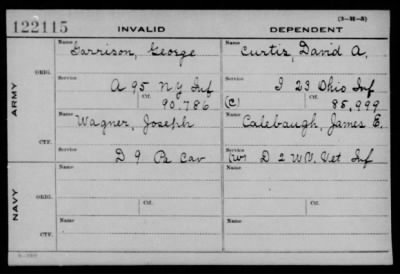 (3-21-3)
122115 INVALID DEPENDENT
Name Garrison, George Name Curtis, David A.
ARMY ORIG. Service A 95 N Y Inf Service I 23 Ohio Inf
Ctf. 90,786 (C) Ctf. 85,999
Name Wagner, Joseph Name Calebaugh, James E.
CTF. Service D 9 Pa Cav Service (W) D 2 W.V. Vet Inf
NAVY Name Name
ORIG. Service Ctf. Service Ctf.
Name Name
CTF. Service Service